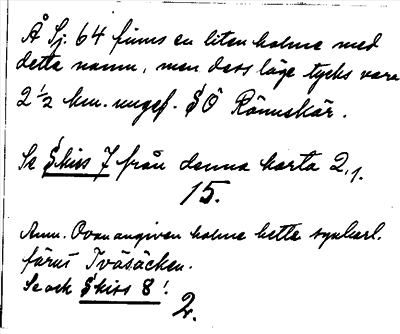 Å Sj. 64 finns en liten holme med
detta namn, men dess läge tycks vara
2 1/2 km. ungef. S Ö Rönnskär.
Se Skiss 7 från denna karta 2.1.
15.
Anm. Ovanangiven holme hette
förut Tvåsäcken.
Se ock Skiss 8!
2.